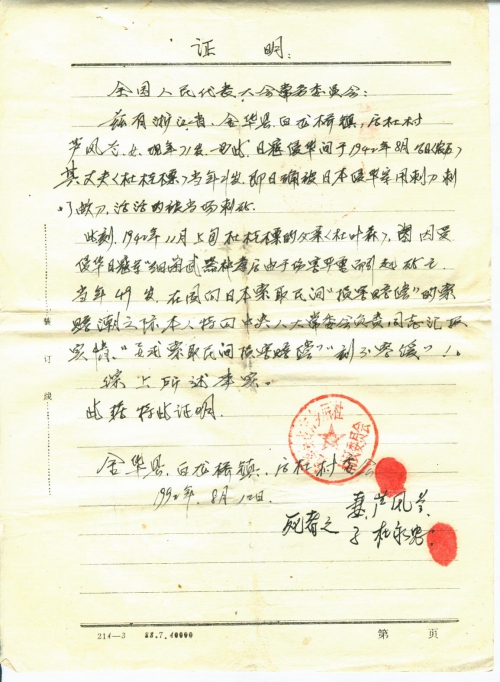 证 明:
全国人民代表大会常务委员会:
兹有浙江省、金华县、白龙桥镇,后杜村
芦凤兰、女、现年71岁,
其丈夫(杜桂樑)当年21岁,即日确被日本侵华军用刺刀刺
了数刀,活活的被当场刺死。
此刻,1942年11月上旬杜桂樑的父亲(杜叶森),因受
侵华日军"细菌武器 后由于伤害严重而引起死亡
当年49岁,在国向日本索取民间"损害赔偿"的索
赔潮之际,本人特向中央人大常委会负责同志汇报
实情,"要求索取民间损害赔偿""刻不容缓"!。
综上所述事实。
此据特此证明.
金华县.白龙桥镇.后杜村委会
1992年.8月12日.
死者之 妻芦凤兰
子杜永忠
装
订
线
214—3 88.7.40000 第 页